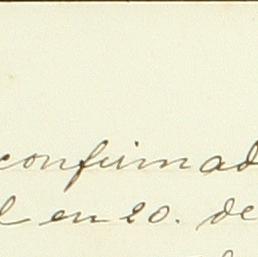 confirmad
l en 20. de